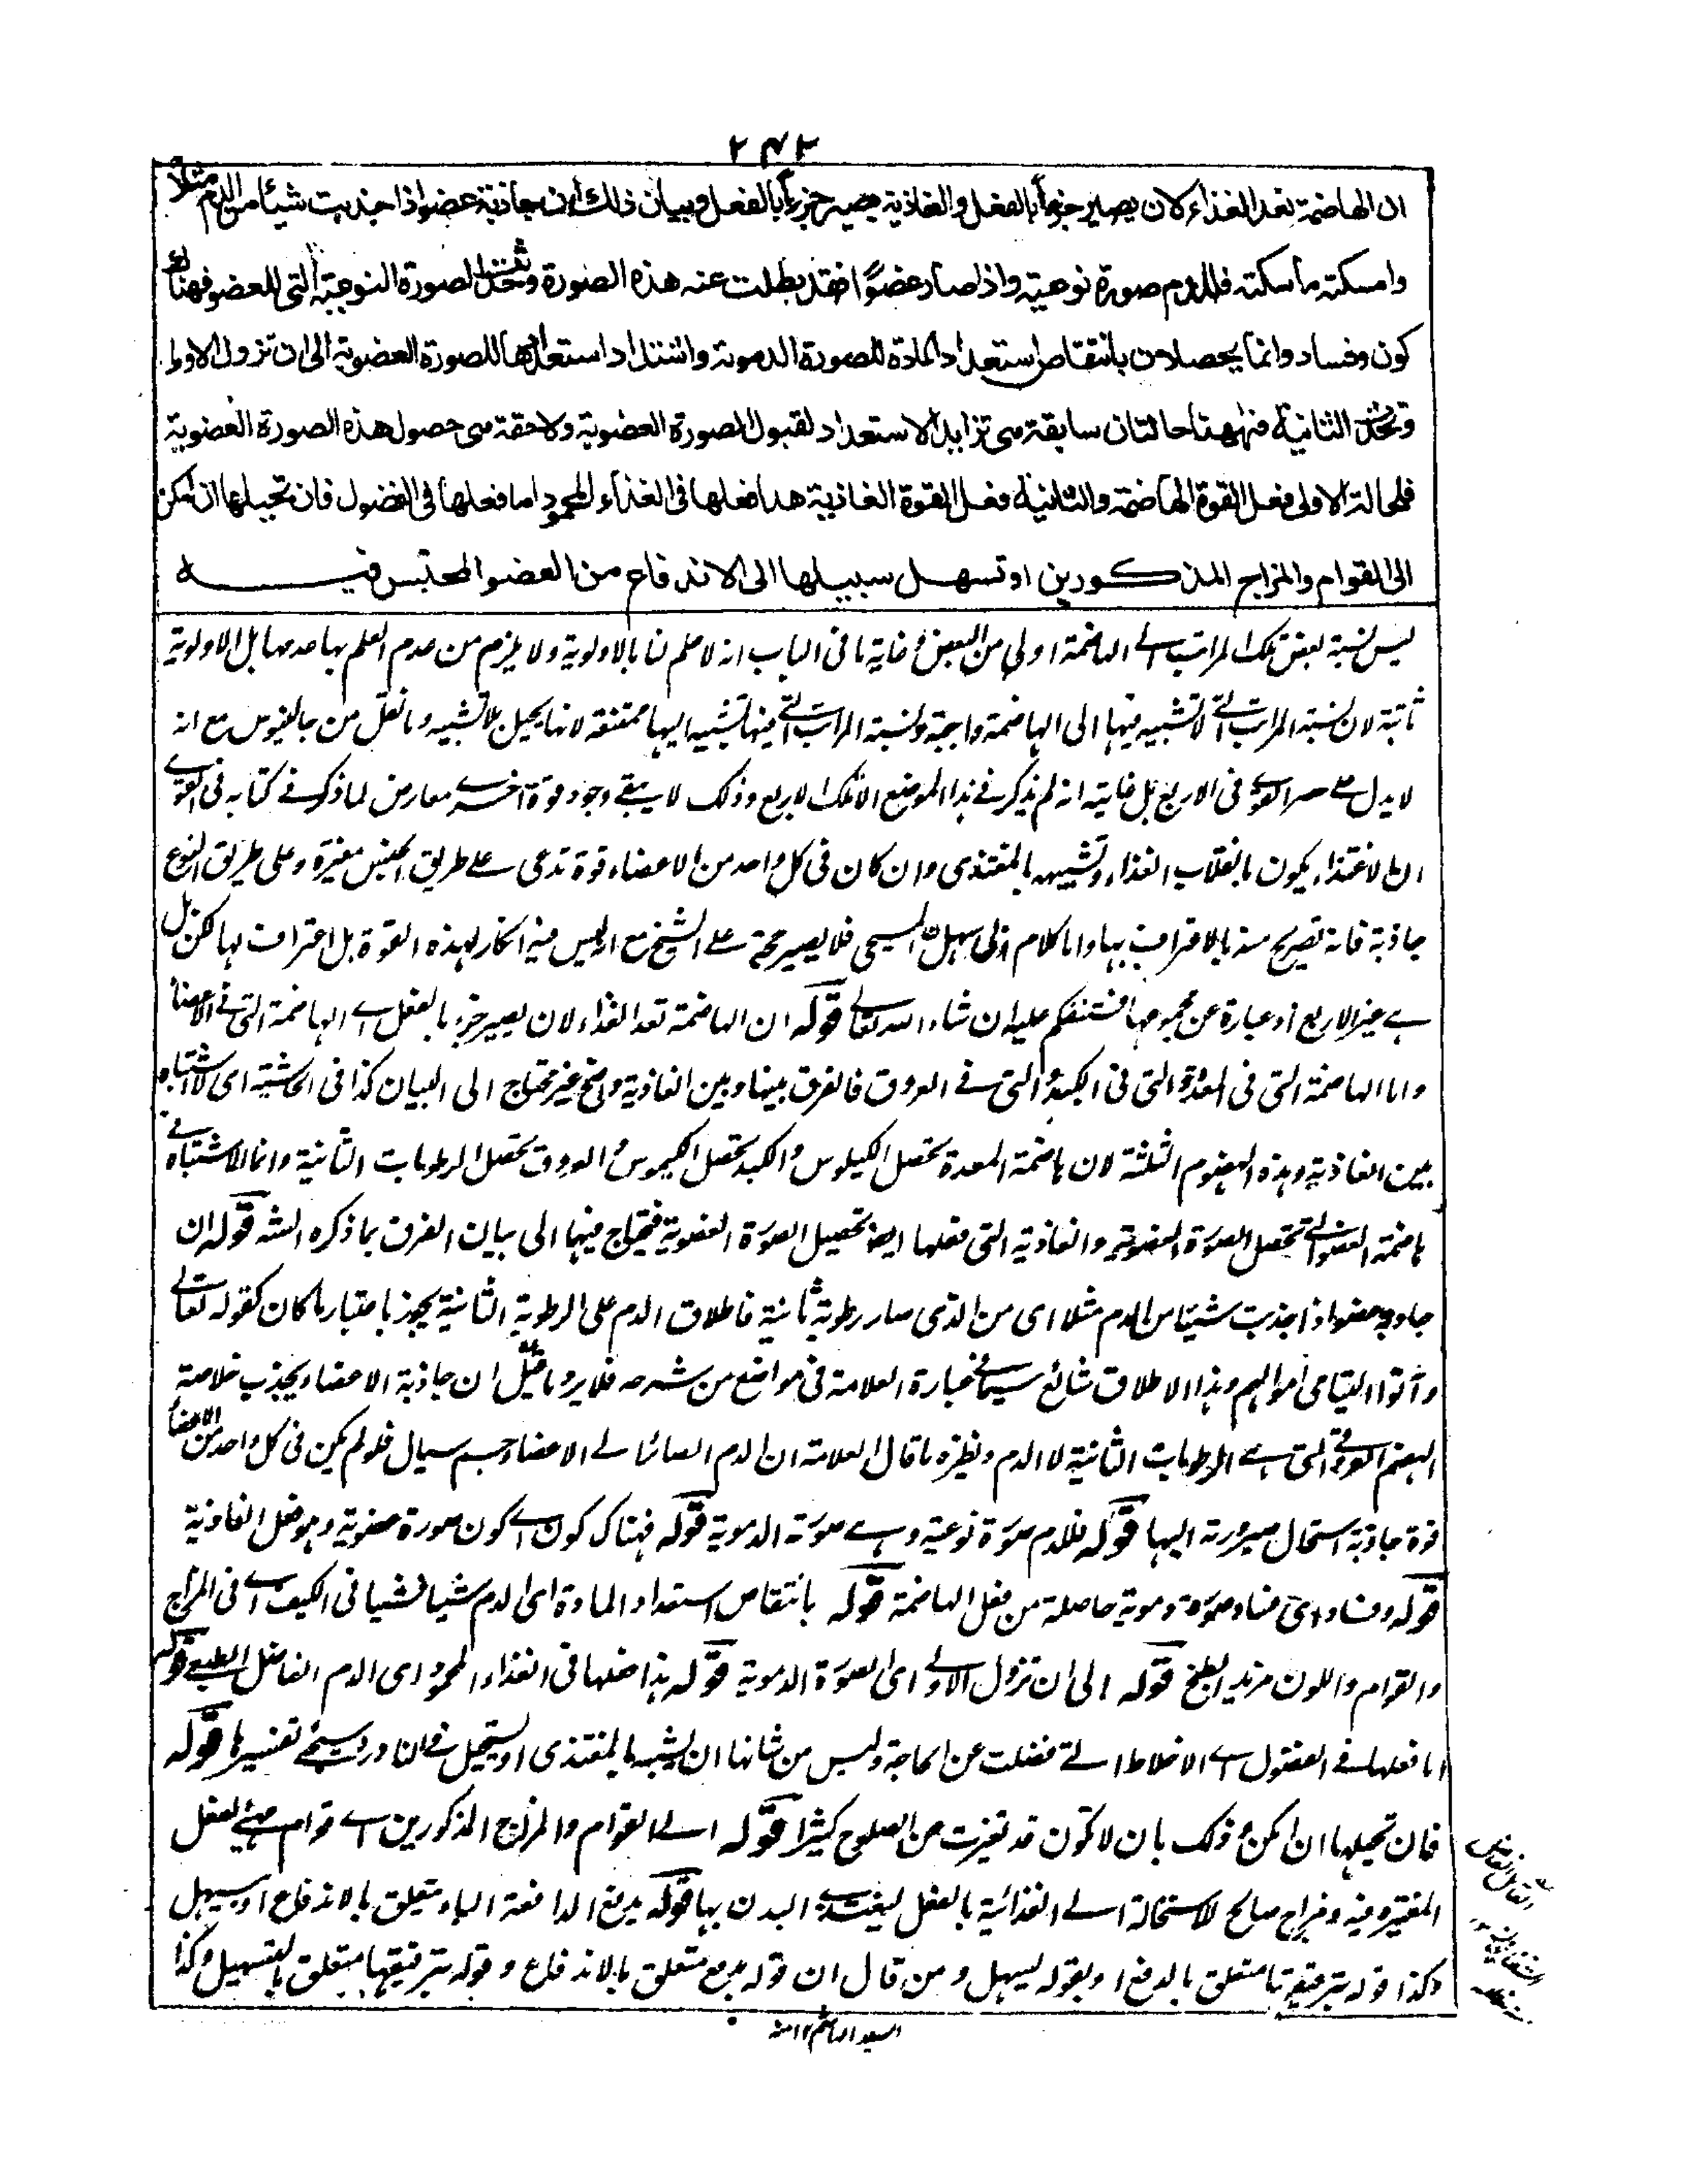 ٢٤٢
ان الهاضمة تعد الغذاء لان يصير جزءاً بالفعل والغاذية يصيره جزءاً بالفعل وبيان ذلك ان جاذبة عضو اذا جذبت شيئا من الدم مثلاً
وامسكته ماسكته فللدم صورة نوعية واذا صار عضوًا فقد بطلت عنه هذه الصورة وتحدث الصورة النوعية التى للعضو فهناك
كون وفساد وانما يحصلان بانتقاص استعداد المادة للصورة الدموية واشتداد استعدادها للصورة العضوية الى ان تزول الاولى
وتحدث الثانية فههنا حالتان سابقة هى تزايد الاستعداد لقبول الصورة العضوية ولاحقة هى حصول هذه الصورة العضوية
فالحالة الاولى فعل القوة الهاضمة والثانية فعل القوة الغاذية هذا فعلها فى الغذاء المحمود اما فعلها فى الفضول فان تحيلها ان امكن
الى القوام والمزاج المذكورين او تسهل سبيلها الى الاندفاع من العضو المحتبس فيه
ليس نسبة بعض تلك المراتب الے الهاضمة اولى من البعض وغاية ما فى الباب انه لا علم لنا بالاولوية ولا يلزم من عدم العلم بها عدمها بل الاولوية
ثابتة لان نسبة المراتب التے لا تشبيه فيها الى الهاضمة واجبة ونسبة المراتب التے فيها تشبيه اليها ممتنعة لانها يحيل بلا تشبيه وما نقل من جالينوس مع انه
لا يدل علے حصر القوے فى الاربع بل غايته انه لم يذكر فے هذا الموضع الا تلك الاربع وذلك لا ينفے وجود قوة اخرے معارض لما ذكر فے كتابه فى القوے
ان الاغتذاء يكون بانقلاب الغذاء وتشبيهه بالمغتذى وان كان فى كل واحد من الاعضاء قوة تدعى علے طريق الجنس مغيرة وعلى طريق النوع
جاذبة فانه تصريح منه بالاعتراف بها واما كلام ابى سهل المسيحى فلا يصير حجة علے الشيخ مع انه ليس فيه انكار لهذه القوة بل اعتراف بها لكن هل
هے غير الاربع او عبارة عن مجموعها فستنفكم عليه ان شاء الله تعالے قوله ان الهاضمة تعد الغذاء لان يصير جزء بالفعل اے الهاضمة التى فے الاعضا
واما الهاضمة التى فى المعدة والتى فى الكبد والتى فے العروق فالفرق بينها وبين الغاذية واضح غير محتاج الى البيان كذا فى الحاشية اى لا اشتباه
بين الغاذية وهذه الهضوم الثلثة لان هاضمة المعدة تحصل الكيلوس والكبد تحصل الكيموس والعروق تحصل الرطوبات الثانية وانما الاشتباه فے
هاضمة العضو التے تحصل الصورة العضوية والغاذية التى فعلها ايضا تحصيل الصورة العضوية فيحتاج فيها الى بيان الفرق بما ذكره الشه قوله ان
جاذبة عضو اذا جذبت شيئا من الدم مثلا اى من الذى صار رطوبة ثانية فاطلاق الدم على الرطوبة الثانية يجوز باعتبار ما كان كقوله تعالے
وآتوا اليتامى اموالهم وهذا الاطلاق شائع سيما فے عبارة العلامة فى مواضع من شرحه فلا يرد ما قيل ان جاذبة الاعضاء يجذب خلاصة
الهضم العروقے التى هے الرطوبات الثانية لا الدم ونظيره ما قال العلامة ان الدم الصائر الے الاعضاء جسم سيال فلو لم يكن فى كل واحد من الاعضا
قوة جاذبة استحال صيرورته اليها قوله فللدم صورة نوعية وهے صورته الدموية قوله فهناك كون اے كون صورة عضوية وهو فعل الغاذية
قوله وفساد اى فساد صورة دموية حاصلة من فعل الهاضمة قوله بانتقاص استعداد المادة اى الدم شيئا فشيئا فى الكيف اے فى المزاج
والقوام واللون مزيد الطبخ قوله الى ان تزول الاولے اى الصورة الدموية قوله هذا فعلها فى الغذاء المحمود اى الدم الفاضل الطبيعے قوله
اما فعلها فے الفضول اے الاخلاط التے فضلت عن الحاجة وليس من شانها ان يشبه بالمغتذى او يستحيل فے النادر وسيجئے تفسيرها قوله
فان تحيلها ان امكن ذلك بان لا تكون قد تغيرت عن الصلوح كثيرا قوله الے القوام والمزاج المذكورين اے قوام مهيئ لفعل
المغيرة فيه ومزاج صالح للاستحالة الے الغذائية بالفعل ليغتذى البدن بها قوله بدفع الدافعة الباء متعلق بالاندفاع او بيسهل
وكذا قوله بترقيقها متعلق بالدفع او بقوله ليسهل ومن قال ان قوله بدفع متعلق بالاندفاع وقوله بترقيقها متعلق بالتسهيل وكذا